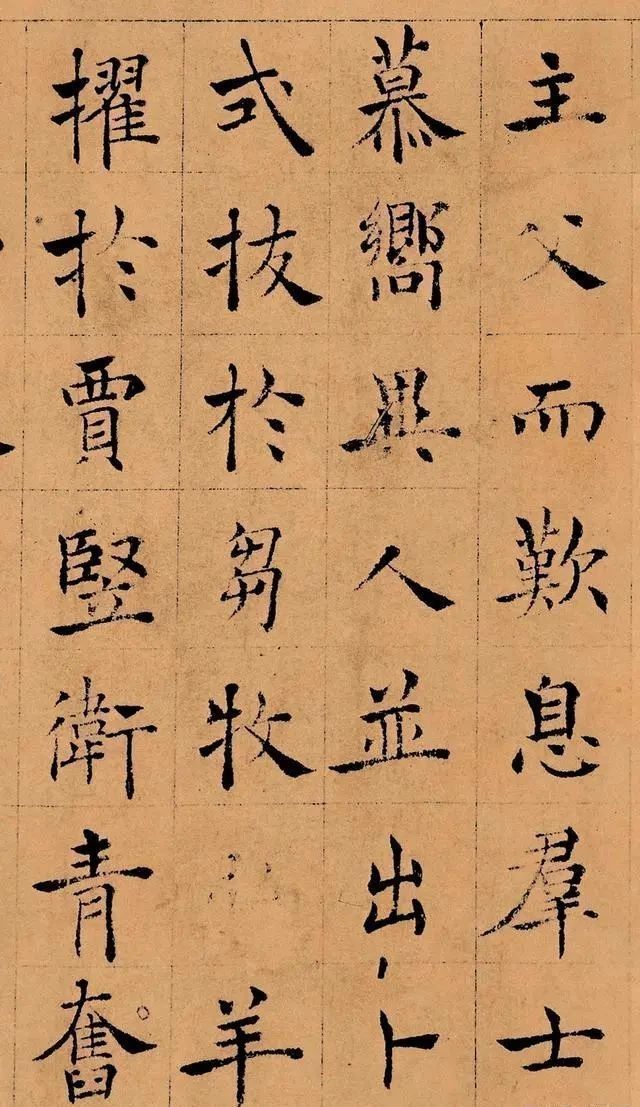 主父而歎息羣士
慕嚮異人並出卜
式拔於芻牧羊
擢於賈竪衛青奮